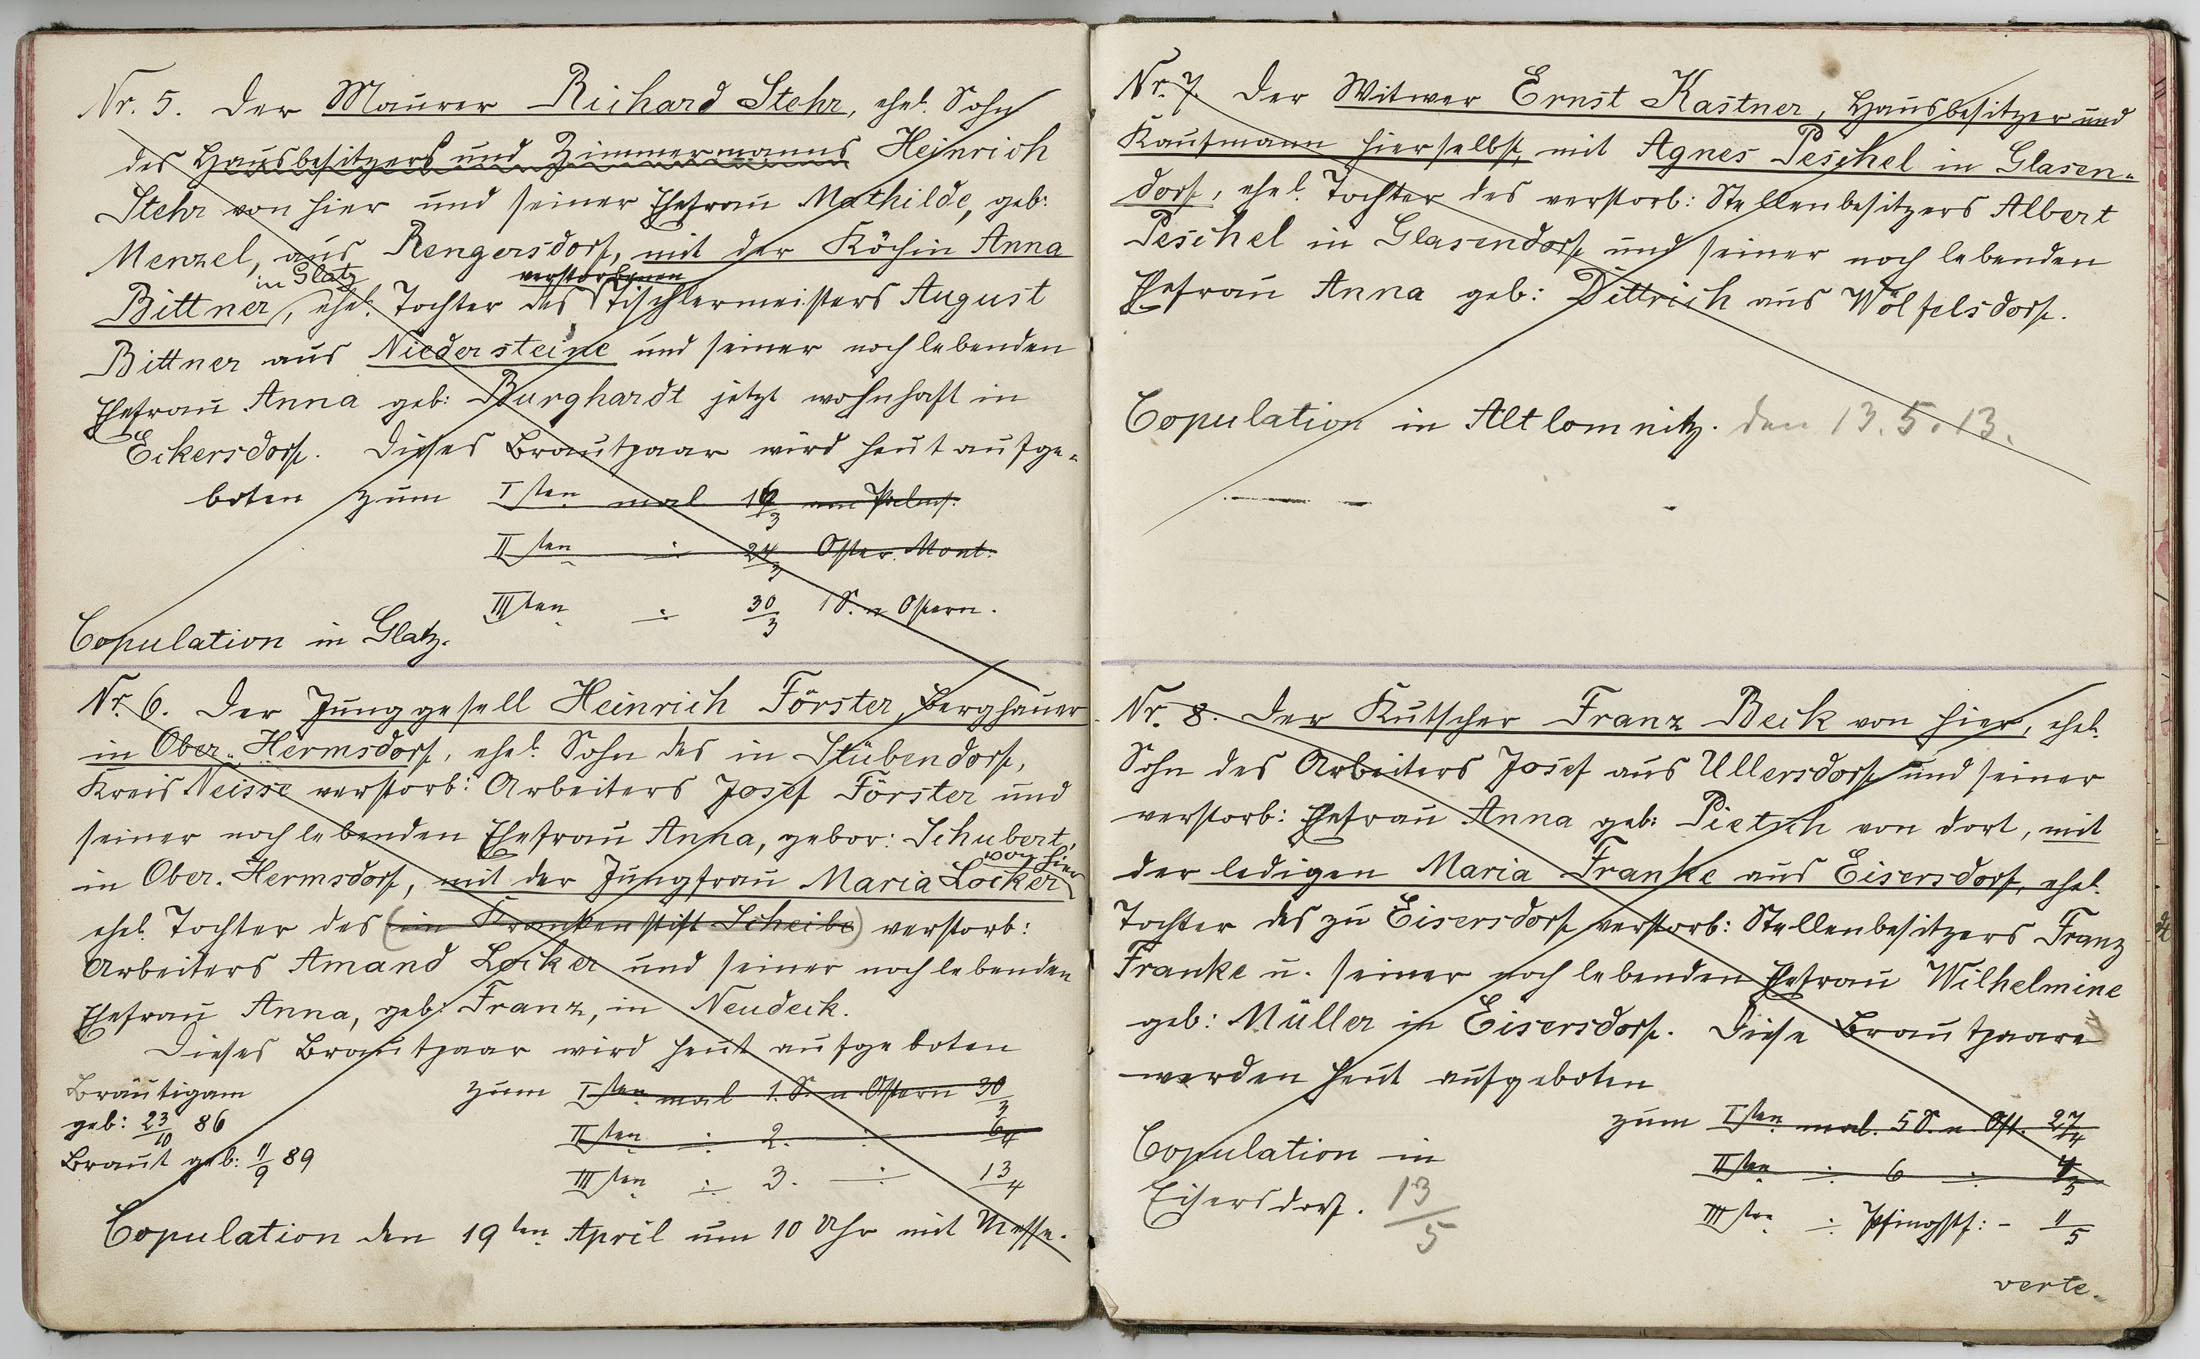 Nr. 5. Der Maurer Richard Stehr, ehel. Sohn
des Hausbesitzers und Zimmermanns Heinrich
Stehr von hier und seiner Ehefrau Mathilde, geb:
Menzel, aus Rengersdorf, mit der Köchin Anna
in Glatz verstorbenen
Bittner, ehel. Tochter des Tischlermeisters August
Bittner aus Niedersteine und seiner noch lebenden
Ehefrau Anna geb: Burghardt jetzt wohnhaft in
Eckersdorf. Dieses Brautpaar wird heut aufge-
boten zum Isten mal 16/3 am Palms.
IIten 24/3 Oster. Mont:
IIIten 30/3 1 S. n Ostern.
Copulation in Glatz.
Nr. 6. Der Junggesell Heinrich Förster, Berghauer
in Ober-Hermsdorf, ehel. Sohn des in Stübendorf,
Kreis Neisse verstorb: Arbeiters Josef Förster und
seiner noch lebenden Ehefrau Anna, gebor: Schubert,
von hier
in Ober-Hermsdorf, mit der Jungfrau Maria Locker
ehel. Tochter des (im Krankenstift Scheibe) verstorb:
Arbeiters Amand Locker und seiner noch lebenden
Ehefrau Anna, geb: Franz, in Neudeck.
Dieses Brautpaar wird heut aufgeboten
zum Isten mal 1. S. n Ostern 30/3
IIten 2. 6/4
IIIten 3. 13/4
Bräutigam
geb: 23/10 86
Braut geb: 11/9 89
Copulation den 19ten April um 10 Uhr mit Messe.
Nr. 7. Der Witwer Ernst Kastner, Hausbesitzer und
Kaufmann hierselbst, mit Agnes Peschel in Glasen-
dorf, ehel. Tochter des verstorb: Stellenbesitzers Albert
Peschel in Glasendorf und seiner noch lebenden
Ehefrau Anna geb: Dittrich aus Wölfelsdorf.
Copulation in Altlomnitz. den 13. 5. 13.
Nr. 8. Der Kutscher Franz Beck von hier, ehel.
Sohn des Arbeiters Josef aus Ullersdorf und seiner
verstorb: Ehefrau Anna geb: Pietsch von dort, mit
der ledigen Maria Franke aus Eisersdorf, ehel.
Tochter des zu Eisersdorf verstorb: Stellenbesitzers Franz
Franke u. seiner noch lebenden Ehefrau Wilhelmine
geb: Müller in Eisersdorf. Diese Brautpaare
werden heut aufgeboten
zum Isten mal. 5 S. n. Ost. 27/4
IIten 6 4/5
IIIten Pfingstf: - 11/5
Copulation in
Eisersdorf. 13/5
verte.